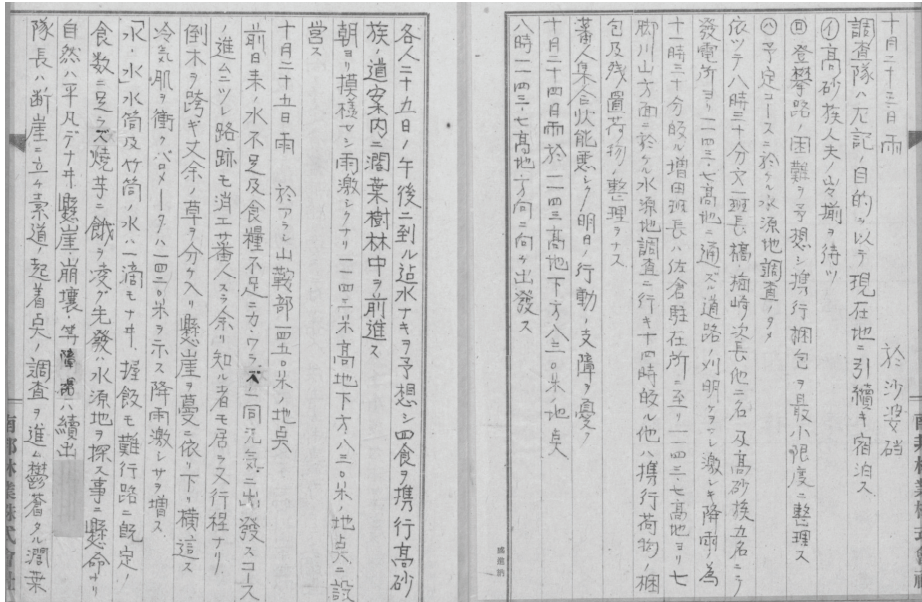 十月二十三日 雨 於沙婆礑
調査隊ハ左記ノ目的ヲ以テ現在地ニ引續キ宿泊ス
(イ)高砂族人夫ノ出揃ヲ待ツ
(ロ)登攀路ノ困難ヲ予想シ携行梱包ヲ最小限度ニ整理ス
(ハ)予定コースニ於ケル水源地調査ノタメ
依ツテ八時三十分 班長 次長他二名及高砂族五名ニテ
發電所ヨリ一一四三・七高地ニ通ズル道路ノ刈明ケヲナシ激シキ降雨ノ為
十一時三十分皈ル増田班長ハ佐倉駐在所ニ至リ一一四三・七高地ヨリ七
脚川山方面ニ於ケル水源地調査ニ行キ十四時皈ル他ハ携行荷物ノ梱
包及残置荷物ノ整理ヲナス
蕃人集合状態悪シク明日ノ行動ニ支障ヲ憂フ
十月二十四日 雨 於一一四三高地下方八三〇米ノ地点
八時一一四三・七高地方向ニ向ケ出發ス
各人二十五日ノ午後ニ到ル迠水ナキヲ予想シ四食ヲ携行高砂
族ノ道案内ニ濶葉樹林中ヲ前進ス
朝ヨリ模様 雨激シクナリ一一四三米高地下方八三〇米ノ地点ニ設
営ス
十月二十五日 雨 於アラシ山鞍部一四五〇米ノ地点
前日来ノ水不足及食糧不足ニカヽワラズ一同元気ニ出發スコース
ノ進ムニツレ路跡モ消エ蕃人スラ余リ知ル者モ居ラヌ行程ナリ
倒木ヲ跨ギ丈余ノ草ヲ分ケ入リ懸崖ヲ蔓ニ依リ下リ横這ス
冷気肌ヲ衝クバロメータハ一四二〇米ヲ示ス降雨激シサヲ増ス
「水・水」水筒及竹筒ノ水ハ一滴モナキ、握飯モ難行路ニ既定ノ
食数ニ足ラズ焼芋ニ餓ヲ凌グ先發ハ水源地ヲ探ス事ニ懸命ナリ
自然ハ平凡デナキ懸崖、崩壊、等障碍ハ續出
隊長ハ断崖ニ立チ索道ノ起着点ノ調査ヲ進ム鬱蒼タル濶葉
南邦林業株式會社